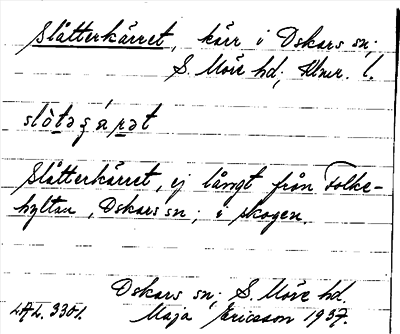 Slåtterkärret, kärr i Oskars sn;
S. Möre hd; Klmr. l.
slò̀təʒárət
Slåtterkärret, ej långt från Folke-
hyltan, Oskars sn; i skogen.
Oskars sn; S. Möre hd.
LAL. 3301. Maja Ericsson 1937